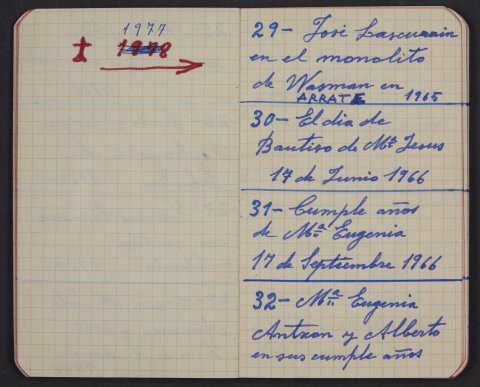 1977
1978
29- José Lascurain
en el monolito
de Wasman en
ARRATE 1965
30- El dia de
Bautizo de Mª Jesus
17 de Junio 1966
31- Cumple años
de Mª Eugenia
17 de Septiembre 1966
32- Mª Eugenia
Antxon y Alberto
en sus cumple años